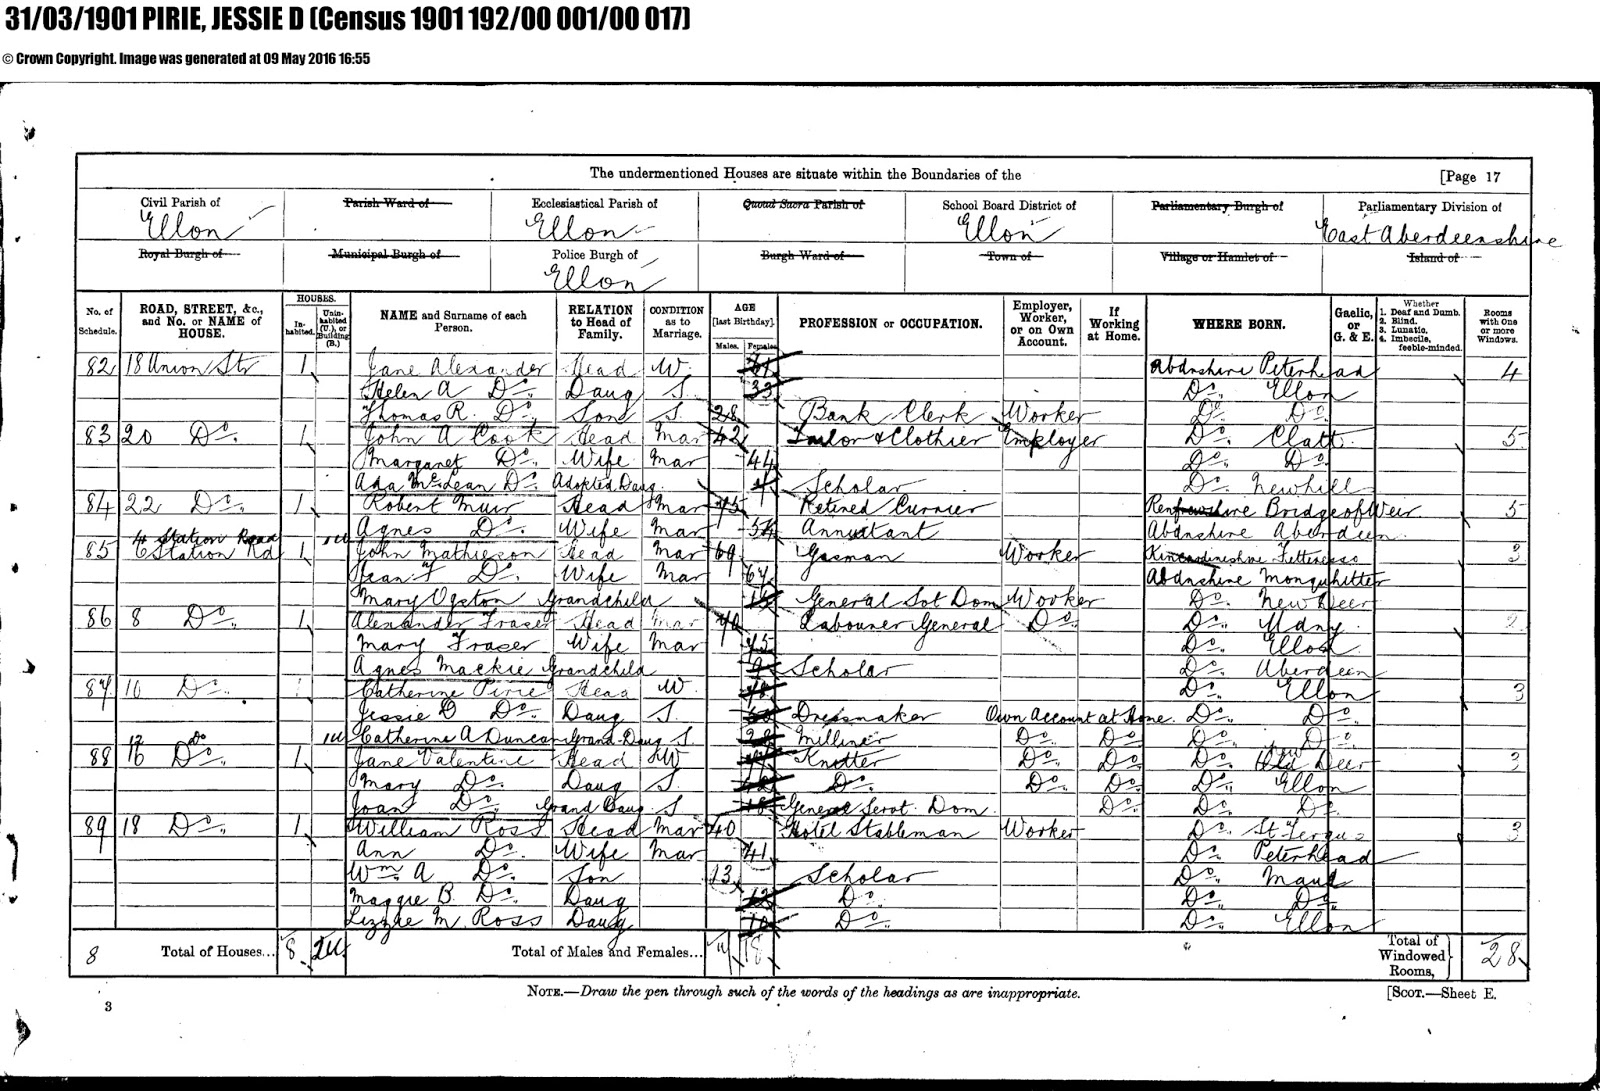 31/03/1901 PIRIE, JESSIE D (Census 1901 192/00 001/00 017)
© Crown Copyright. Image was generated at 09 May 2016 16:55
The undermentioned Houses are situate within the Boundaries of the [Page 17
Civil Parish of Parish Ward of Ecclesiastical Parish of Quoad Sacra Parish of School Board District of Parliamentary Burgh of Parliamentary Division of
Ellon Ellon Ellon East Aberdeenshire
Royal Burgh of Municipal Burgh of Police Burgh of Burgh Ward of Town of Village or Hamlet of Island of
Ellon
No. of Schedule. ROAD, STREET, &c., and No. or NAME of HOUSE. HOUSES. Inhabited. Uninhabited (U.), or Building (B.) NAME and Surname of each Person. RELATION to Head of Family. CONDITION as to Marriage. AGE [last Birthday]. Males. Females. PROFESSION or OCCUPATION. Employer, Worker, or on Own Account. If Working at Home. WHERE BORN. Gaelic, or G. & E. Whether 1. Deaf and Dumb. 2. Blind. 3. Lunatic. 4. Imbecile, feeble-minded. Rooms with One or more Windows.
82 18 Union Str 1 Jane Alexander Head W. Abdnshire Peterhead 4
Helen A Do. Daug S. 33 Do. Ellon
Thomas R. Do. Son S. 28 Bank Clerk Worker Do. Do.
83 20 Do. 1 John A Cook Head Mar 42 Tailor & Clothier Employer Do. Clatt 5
Margaret Do. Wife Mar 44 Do. Do.
Ada McLean Do. Adopted Daug. Scholar Do. Newhill
84 22 Do. 1 Robert Muir Head Mar 75 Retired Currier Renfrewshire Bridge of Weir 5
Agnes Do. Wife Mar 54 Annuitant Abdnshire Aberdeen
4 Station Road 1U
85 6 Station Rd 1 John Mathieson Head Mar 69 Gasman Worker Kincardineshire Fettercso 3
Jean F Do. Wife Mar 67 Abdnshire Monquhitter
Mary Ogston Grandchild General Svt Dom Worker Do. New Deer
86 8 Do. 1 Alexander Fraser Head Mar 70 Labourer General Do. Do. Udny 2
Mary Fraser Wife Mar 75 Do. Ellon
Agnes Mackie Grandchild 9 Scholar Do. Aberdeen
87 10 Do. 1 Catherine Pirie Head W Do. Ellon 3
Jessie D Do. Daug S. Dressmaker Own Account at Home. Do. Do.
12 Do 1U Catherine A Duncan Grand-Daug S Milliner Do. Do. Do. Do.
88 16 Do. 1 Jane Valentine Head W Knitter Do. Do. Do. New Deer 3
Mary Do. Daug S. Do. Do. Do. Do. Ellon
Joan Do. Grand Daug S General Servt. Dom. Do. Do. Do.
89 18 Do. 1 William Ross Head Mar 40 Hotel Stableman Worker Do. St Fergus 3
Ann Do. Wife Mar 41 Do. Peterhead
Wm A Do. Son 13 Scholar Do. Maud
Maggie B Do. Daug 12 Do. Do. Do.
Lizzie M Ross Daug 10 Do. Do. Ellon
8 Total of Houses... 8 2U Total of Males and Females... 18 Total of Windowed Rooms, 28
NOTE.—Draw the pen through such of the words of the headings as are inappropriate. [SCOT.—Sheet E.
3